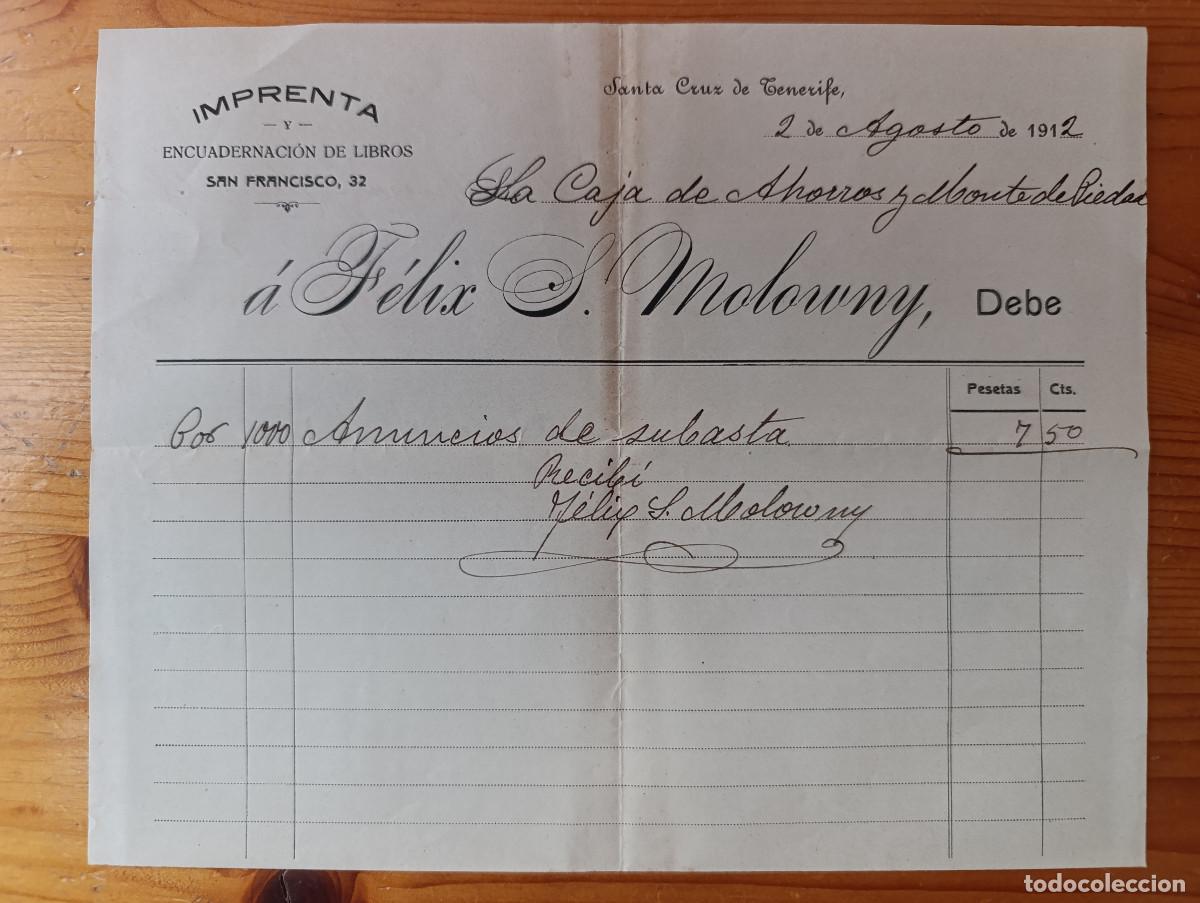 IMPRENTA
Y
ENCUADERNACIÓN DE LIBROS
SAN FRANCISCO, 32
Santa Cruz de Tenerife,
2 de Agosto de 1912
La Caja de Ahorros y Monte de Piedad
á Félix S. Molowny, Debe
Pesetas Cts.
Por 1000 Anuncios de subasta 7 50
Recibí
Félix S. Molowny
todocoleccion